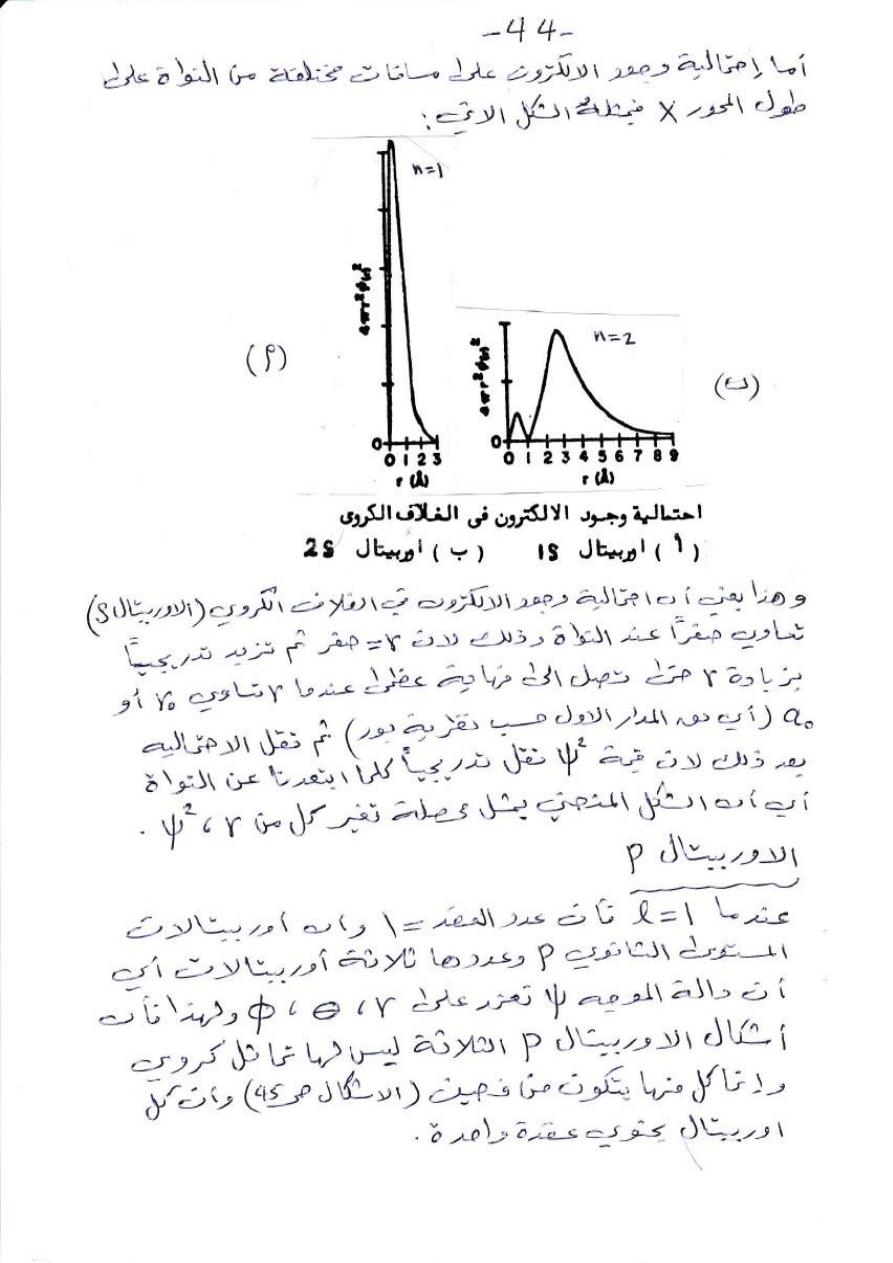 -44-
أما إحتمالية وجود الالكترون على مسافات مختلفة من النواة على
طول المحور X فيمثله الشكل الاتي:
n=1
4πr²ψ(r)²
(أ)
0
0 1 2 3
r (Å)
n=2
4πr²ψ(r)²
(ب)
0
0 1 2 3 4 5 6 7 8 9
r (Å)
احتمالية وجود الالكترون في الغلاف الكروى
(أ) اوربيتال 1S (ب) أوربيتال 2S
وهذا يعني أن احتمالية وجود الالكترون في الغلاف الكروي (الاوربيتال S)
تساوي صفراً عند النواة وذلك لان r = صفر ثم تزيد تدريجياً
بزيادة r حتى تصل الى نهاية عظمى عندما r تساوي r₀ أو
a₀ (أي نق المدار الاول حسب نظرية بور) ثم تقل الاحتماليه
بعد ذلك لان قيمة ψ² تقل تدريجياً كلما ابتعدنا عن النواة
أي أن الشكل المنحني يمثل محصلة تغير كل من r ، ψ² .
الاوربيتال P
عندما l = 1 فأن عدد العقد = ١ وأن أوربيتالات
المستوى الثانوي P وعددها ثلاثة أوربيتالات أي
أن دالة الموجه ψ تعتمد على r ، θ ، φ ولهذا فأن
أشكال الاوربيتال P الثلاثة ليس لها تماثل كروي
وإنما كل منها يتكون من فصين (الاشكال ص 45) وأن كل
اوربيتال يحتوي عقدة واحدة .